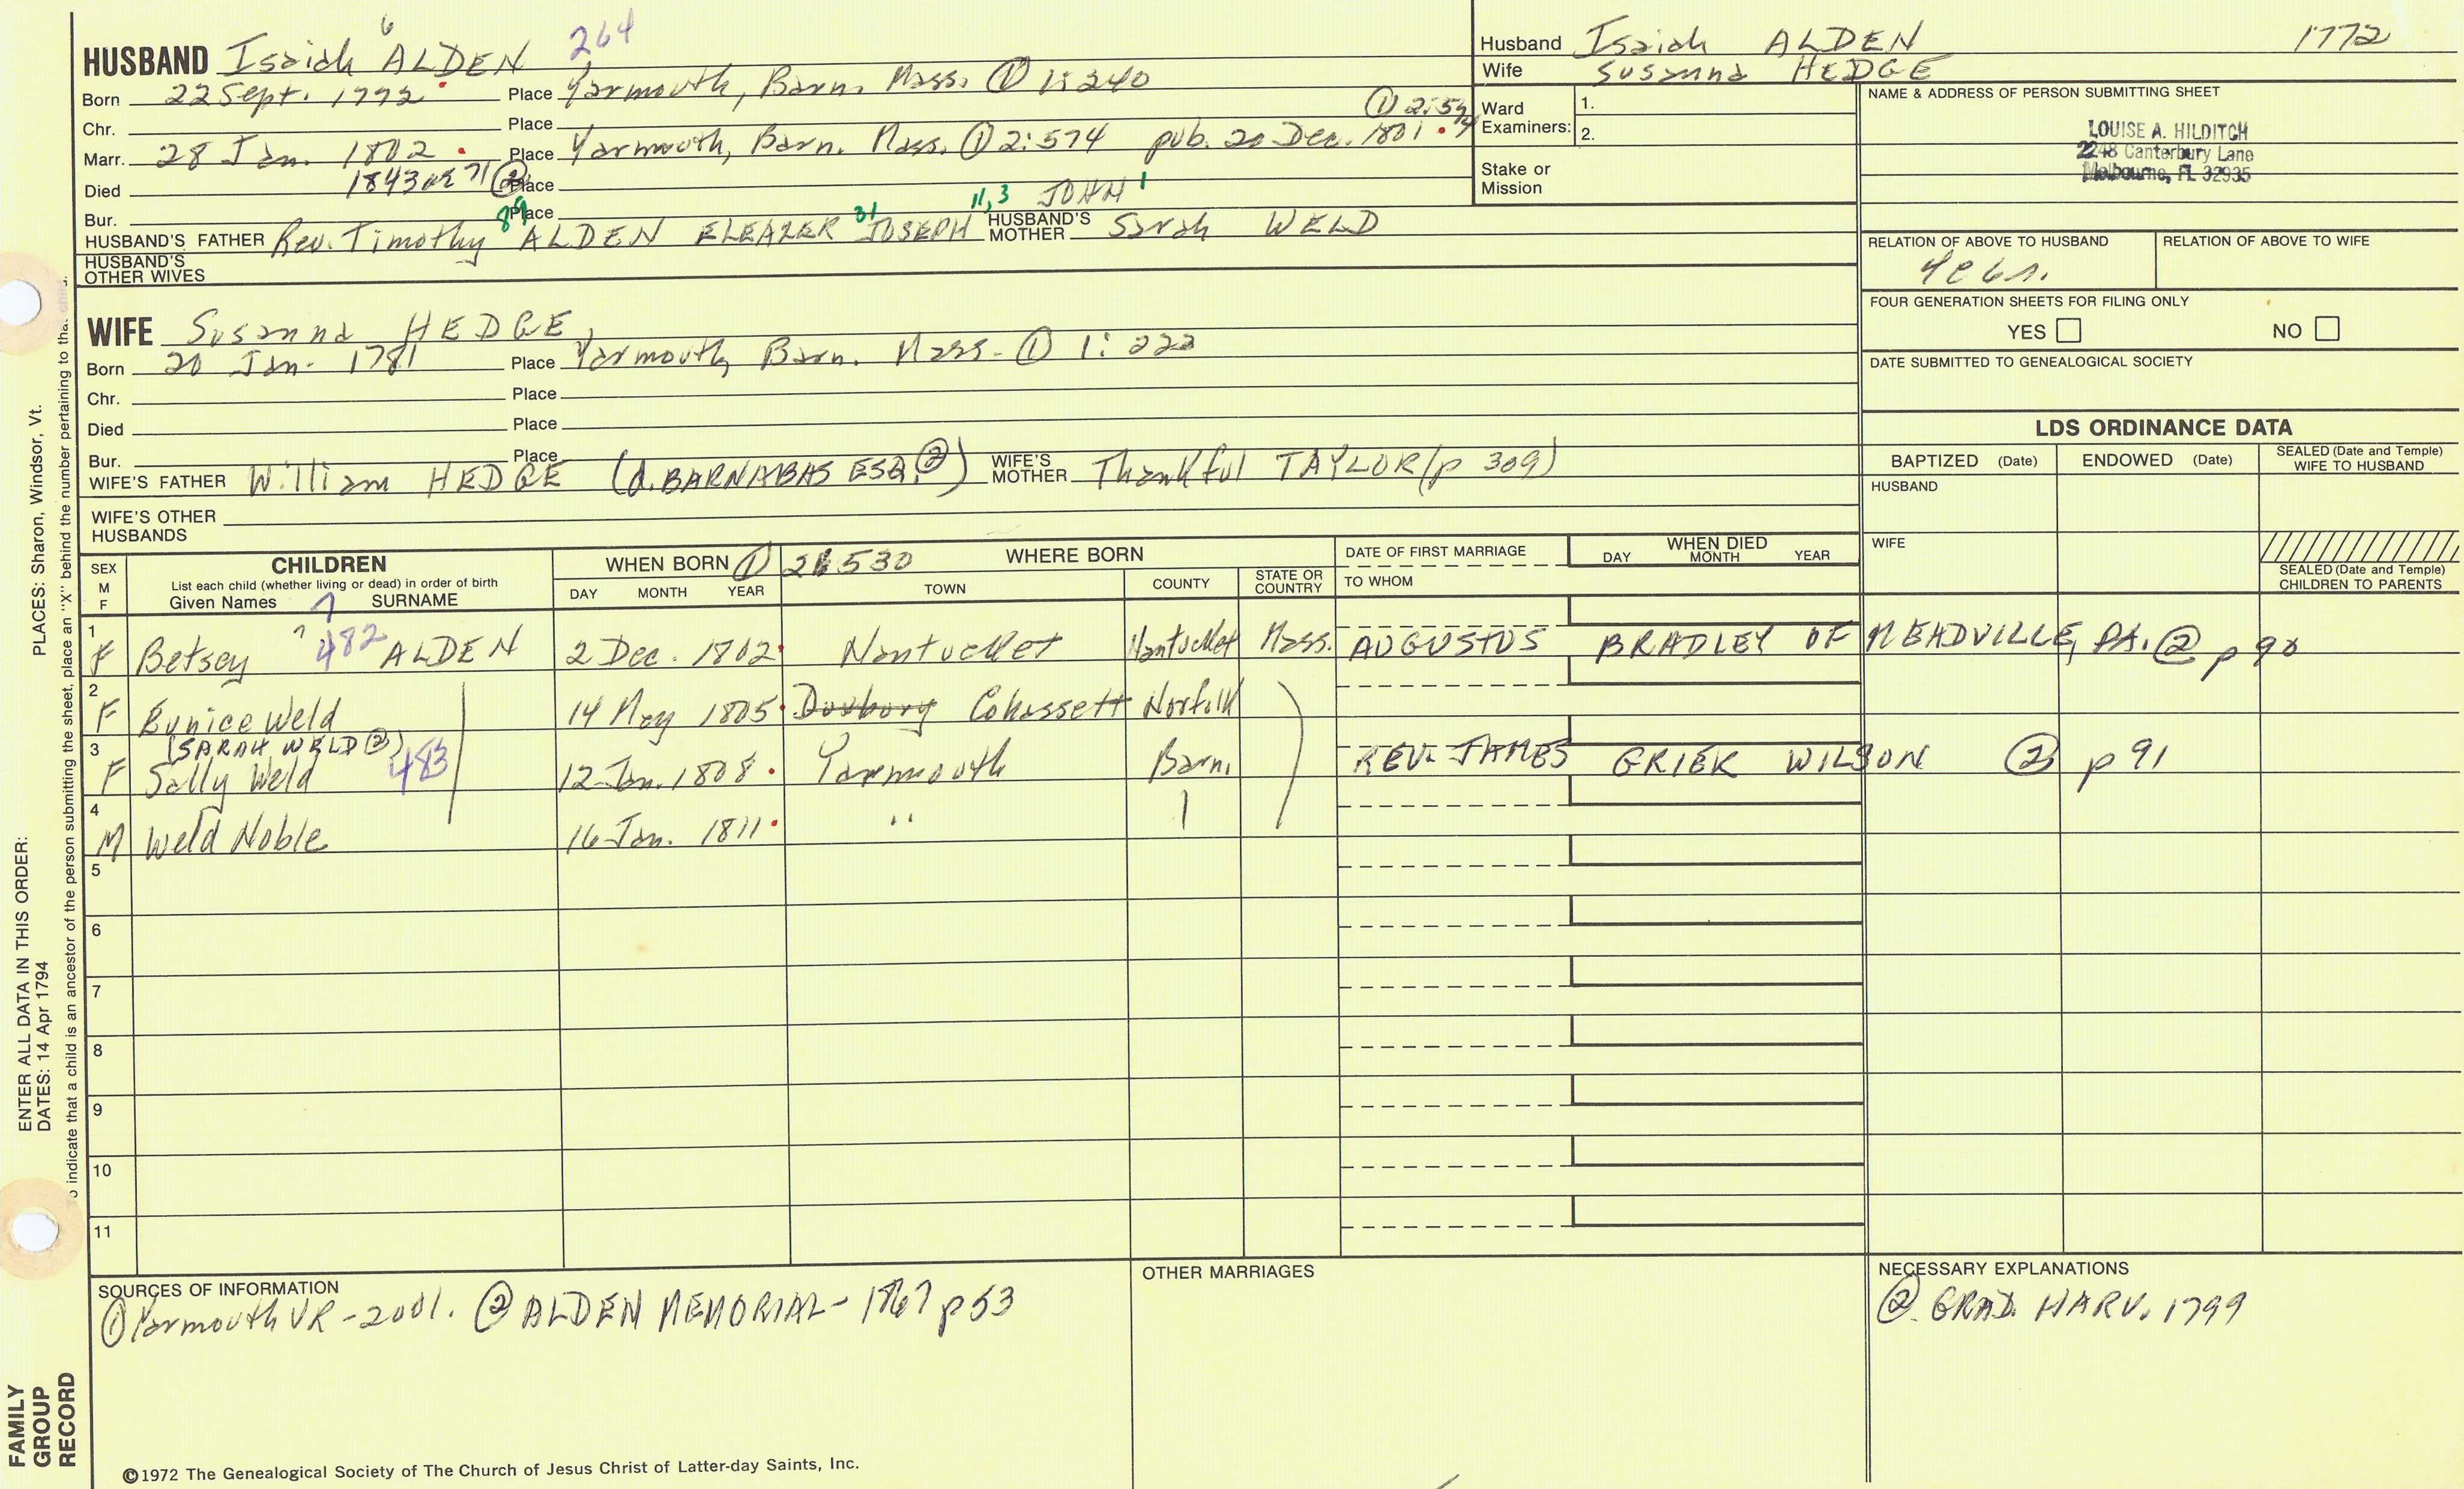 HUSBAND Isaiah 6 ALDEN 264
Born 22 Sept. 1772 Place Yarmouth, Barn. Mass. ① 1:240
Chr. Place ① 2:574
Marr. 28 Jan. 1802 Place Yarmouth, Barn. Mass. ① 2:574 pub. 20 Dec. 1801
Died 1843 AE 71 ② Place
Bur. Place
HUSBAND'S FATHER Rev. Timothy 89 ALDEN ELEAZER 31 JOSEPH 11,3 JOHN 1 HUSBAND'S MOTHER Sarah WELD
HUSBAND'S OTHER WIVES
Husband Isaiah ALDEN 1772
Wife Susanna HEDGE
Ward Examiners: 1.
2.
Stake or Mission
NAME & ADDRESS OF PERSON SUBMITTING SHEET
LOUISE A. HILDITCH
2248 Canterbury Lane
Melbourne, FL 32935
RELATION OF ABOVE TO HUSBAND RELATION OF ABOVE TO WIFE
FOUR GENERATION SHEETS FOR FILING ONLY
YES NO
DATE SUBMITTED TO GENEALOGICAL SOCIETY
WIFE Susanna HEDGE
Born 20 Jan. 1781 Place Yarmouth, Barn. Mass. ① 1:222
Chr. Place
Died Place
Bur. Place
WIFE'S FATHER William HEDGE (d. BARNABAS ESQ. ②) WIFE'S MOTHER Thankful TAYLOR (p 309)
WIFE'S OTHER HUSBANDS
LDS ORDINANCE DATA
BAPTIZED (Date) ENDOWED (Date) SEALED (Date and Temple) WIFE TO HUSBAND
HUSBAND
WIFE
SEALED (Date and Temple) CHILDREN TO PARENTS
SEX M F CHILDREN WHEN BORN ① 2:530 WHERE BORN DATE OF FIRST MARRIAGE WHEN DIED
List each child (whether living or dead) in order of birth
Given Names 7 SURNAME DAY MONTH YEAR TOWN COUNTY STATE OR COUNTRY TO WHOM DAY MONTH YEAR
1 F Betsey 7 482 ALDEN 2 Dec. 1802 Nantucket Nantucket Mass. AUGUSTUS BRADLEY OF MEADVILLE, PA. ② p 90
2 F Eunice Weld 14 May 1805 Duxbury Cohassett Norfolk
(SARAH WELD ②)
3 F Sally Weld 483 12 Jan. 1808 Yarmouth Barn. REV. JAMES GRIER WILSON ② p 91
4 M Weld Noble 16 Jan. 1811 "
5
6
7
8
9
10
11
SOURCES OF INFORMATION
① Yarmouth VR - 2001. ② ALDEN MEMORIAL - 1867 p 53
OTHER MARRIAGES
NECESSARY EXPLANATIONS
② GRAD. HARV. 1799
©1972 The Genealogical Society of The Church of Jesus Christ of Latter-day Saints, Inc.
FAMILY GROUP RECORD
ENTER ALL DATA IN THIS ORDER:
DATES: 14 Apr 1794
PLACES: Sharon, Windsor, Vt.
o indicate that a child is an ancestor of the person submitting the sheet, place an "X" behind the number pertaining to that child.